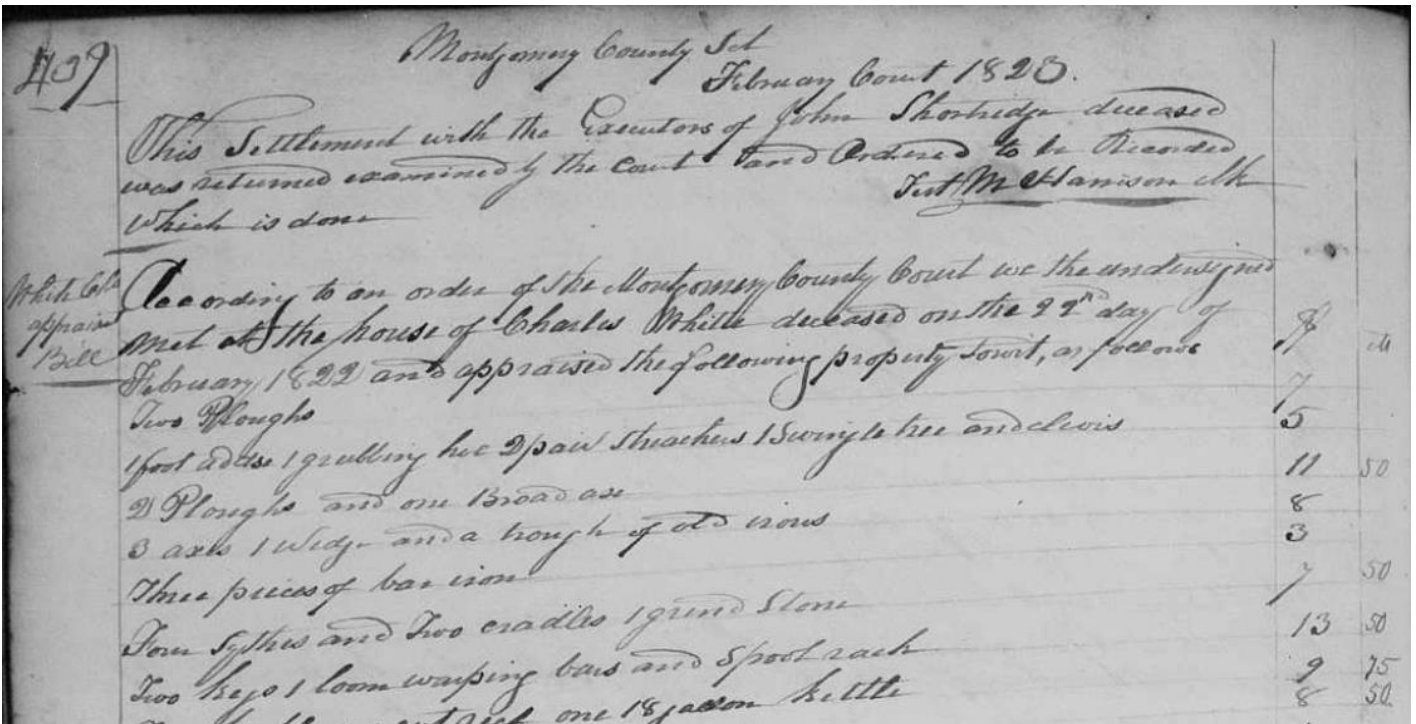 409
Montgomery County Sct
February Court 1823.
This Settlement with the Executors of John Shortridge deceased
was returned examined by the court and Ordered to be Recorded
Which is done
Test M Harrison Clk
White Cha
appraism
Bill
According to an order of the Montgomery County Court we the undersigned
met at the house of Charles White deceased on the 22nd day of
February 1822 and appraised the following property towit, as follows
$ cts
Two Ploughs 7
1 foot addse 1 grubbing hoe 2 pair streachers 1 Swingletree and clevis 5
2 Ploughs and one Broad axe 11 50
3 axes 1 Wedge and a trough of old irons 8
Three pieces of bar iron 3
Four Sythes and Two cradles 1 grind Stone 7 50
Two kegs 1 loom warping bars and Spool rack 13 50
9 75
one 18 gallon kettle 8 50